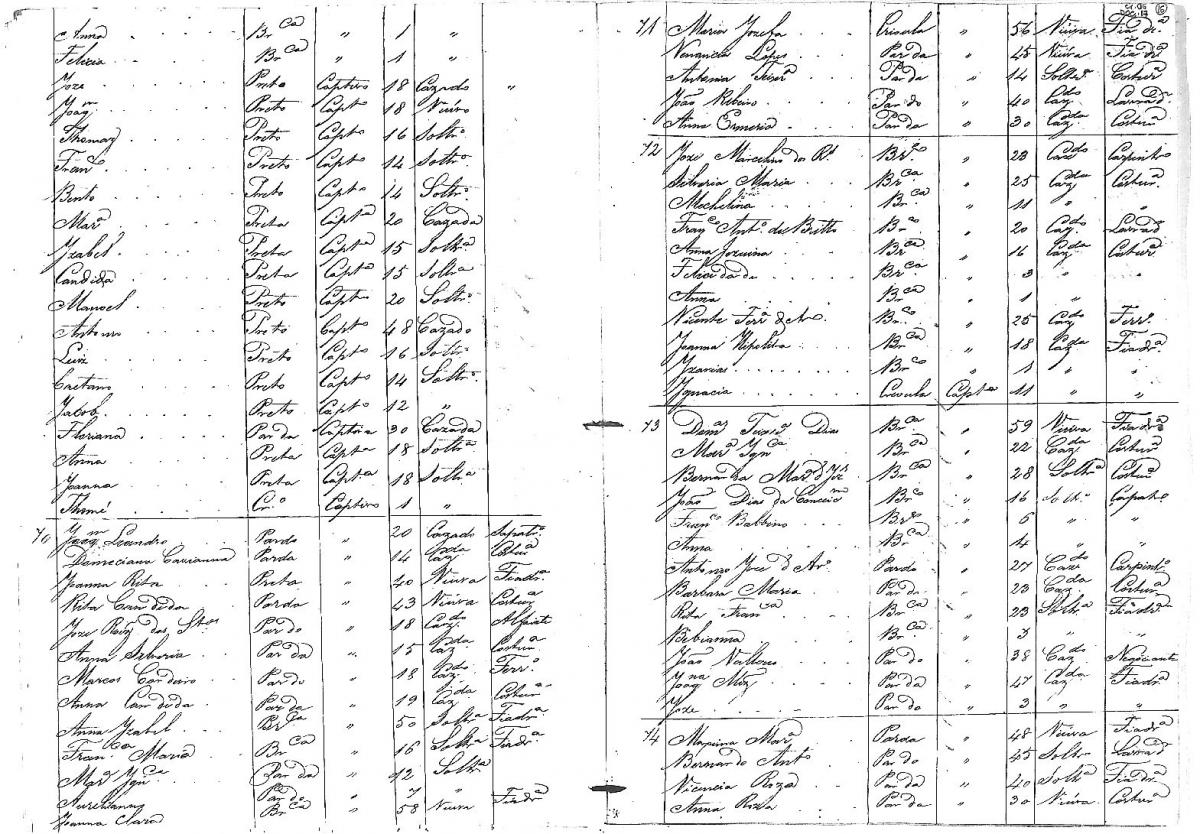 Anna Br.ca " 1 "
Felicia Br.ca " 1 "
Joze Preto Captivo 18 Cazado "
Joaq.m Preto Capt.o 18 Viuvo
Thomaz Preto Capt.o 16 Soltr.o
Fran.co Preto Capt.o 14 Soltr.o
Bento Preto Capt.o 14 Soltr.o
Mar.a Preta Capt.a 20 Cazada
Yzabel Preta Capt.a 15 Solt.a
Candida Preta Capt.a 15 Solt.a
Manoel Preto Capt.o 20 Soltr.o
Antonio Preto Capt.o 48 Cazado
Luiz Preto Capt.o 16 Soltr.o
Caetano Preto Capt.o 14 Soltr.o
Jacob Preto Capt.o 12 "
Floriana Parda Captiva 30 Cazada
Anna Preta Capt.a 18 Solt.a
Joanna Preta Capt.a 18 Solt.a
Thomé Cr.o Captivo 1 "
70 Joaq.m Leandro Pardo " 20 Cazado Sapat.o
Parda " 14 Caz.da Costur.a
Joanna Rita Preta " 40 Viuva Fiadr.a
Rita Candida Parda " 43 Viuva Costur.a
Joze Roiz dos St.os Pardo " 18 Caz.do Alfaiate
Anna Silveria Parda " 15 Caz.da Costur.a
Marcos Cordeiro Pardo " 18 Caz.do Ferr.o
Anna Candida Parda " 19 Caz.da Costur.a
Anna Yzabel Br.ca " 50 Solt.a Fiadr.a
Fran.ca Maria Br.ca " 16 Solt.a Fiadr.a
Mar.a Ign.ca Parda " 42 Solt.a
Aureliano Pardo " 7 "
Joanna Clara Br.ca " 58 Viuva Fiadr.a
71 Maria Jozefa Crioula " 56 Viuva Fiadr.a
Venancia Lopes Parda " 45 Viuva Fiadr.a
Antonia Parda " 14 Soltr.a Costur.a
João Ribeiro Pardo " 40 Caz.do Lavrad.r
Anna Ermeria Parda " 30 Caz.da Costur.a
72 Joze Marcelino dos R.s Br.co " 28 Caz.do Carpintr.o
Silveria Maria Br.ca " 25 Caz.da Costur.a
Mechelina Br.ca " 11 " "
Fran.co Ant.o de Britto Br.co " 20 Caz.do Lavrad.r
Anna Jozuina Br.ca " 16 Caz.da Costur.a
Felicidade Br.ca " 3 " "
Anna Br.ca " 1 "
Vicente Ferr.a Br.co " 25 Caz.do Ferr.o
Joanna Hipolita Br.ca " 18 Caz.da Fiadr.a
Yzarias Br.co " 1 " "
Ygnacia Crioula Capt.a 11 " "
73 Teix.ra Dias Br.ca " 59 Viuva Fiadr.a
Mar.a Ign.ca Br.ca " 22 Caz.da Costur.a
Bernarda Mar.a d Jez. Br.ca " 28 Solt.a Costur.a
João Dias da Conceiç.m Br.co " 16 Soltr.o Çapat.o
Fran.co Balbino Br.co " 6 " "
Anna Br.ca " 4 " "
Antonio Joze d Ar.o Pardo " 27 Caz.do Carpintr.o
Barbara Maria Parda " 23 Caz.da Costur.a
Rita Fran.ca Br.ca " 23 Solt.a Fiadr.a
Bibianna Br.ca " 3 " "
João Parda " 38 Caz.do Negociante
Joaq.na Miz Parda " 47 Caz.da Fiadr.a
Joze Pardo " 3 " "
74 Mar.a Parda " 48 Viuva Fiadr.a
Bernardo Ant.o Pardo " 45 Soltr.o Lavrad.r
Vicencia Roza Parda " 40 Solt.a Fiadr.a
Anna Roza Parda " 30 Viuva Costur.a